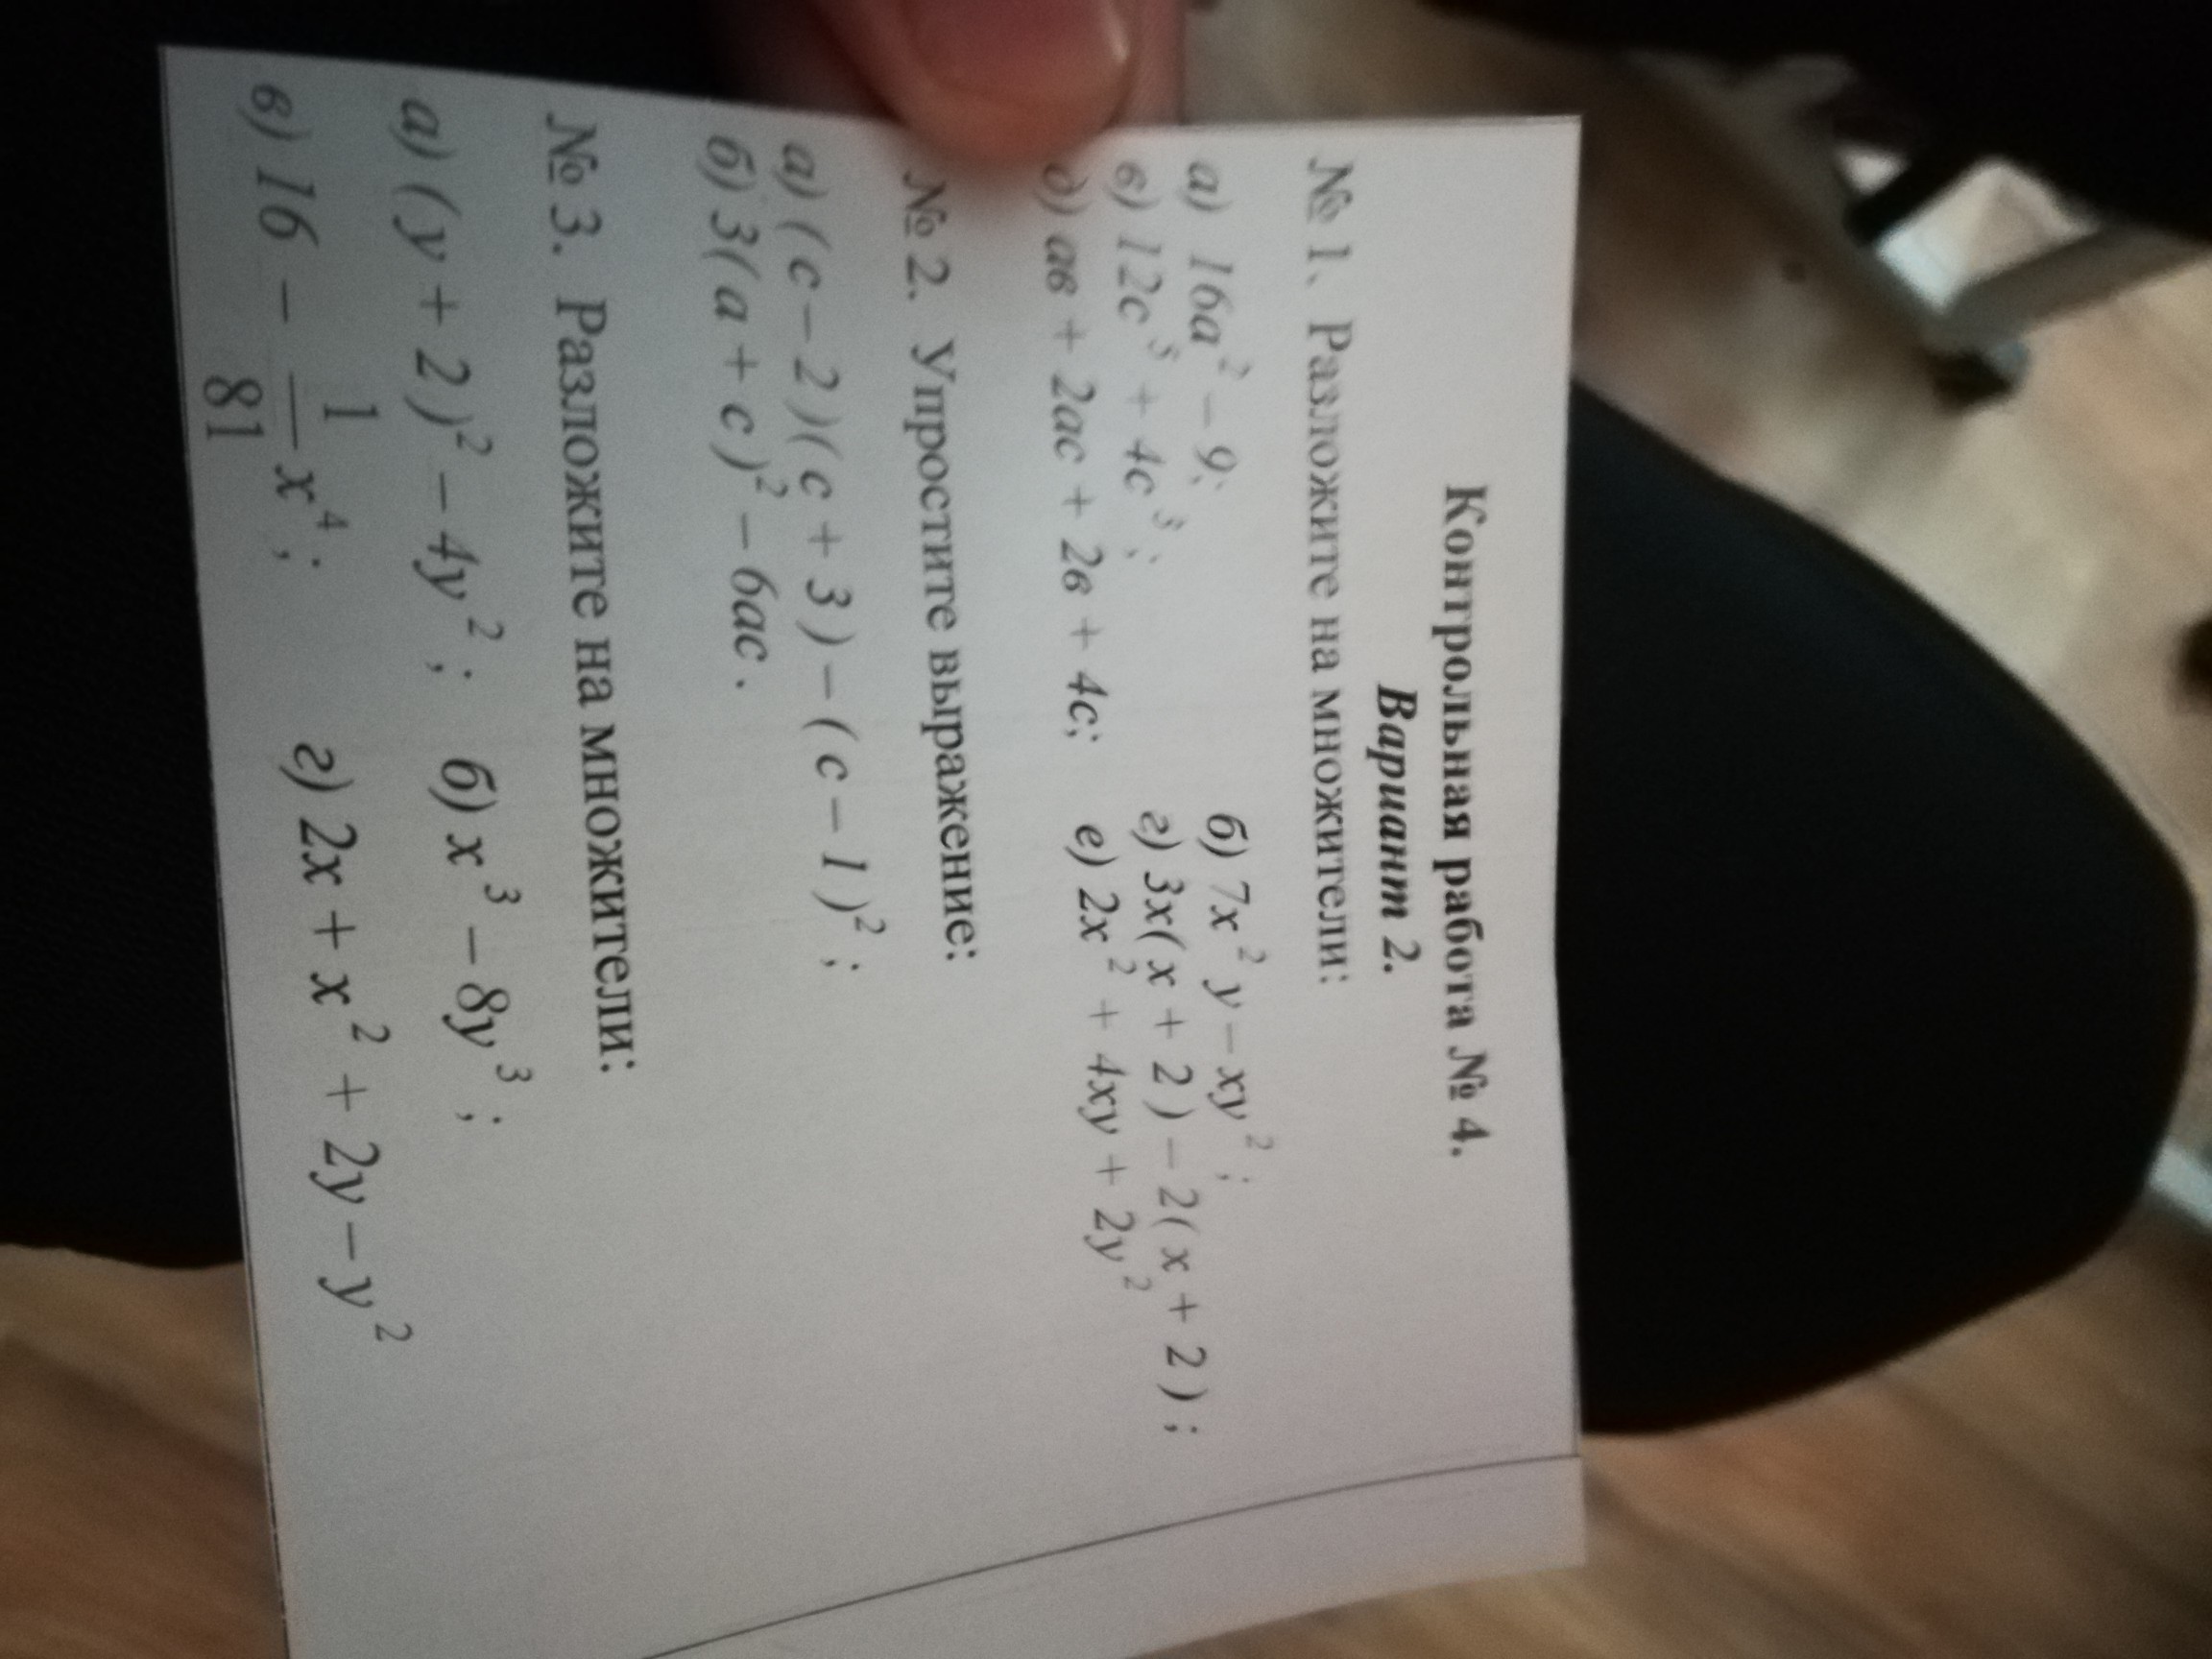 Контрольная работа № 4.
Вариант 2.
№ 1. Разложите на множители:
а) 16а² – 9; б) 7х² у – ху²;
в) 12с⁵ + 4с³; г) 3х( х + 2 ) – 2( х + 2 );
д) ав + 2ас + 2в + 4с; е) 2х² + 4ху + 2у²
№ 2. Упростите выражение:
а) ( с – 2 )( с + 3 ) – ( с – 1 )²;
б) 3( а + с )² – 6ас.
№ 3. Разложите на множители:
а) ( у + 2 )² – 4у²; б) х³ – 8у³;
в) 16 – 1/81 х⁴; г) 2х + х² + 2у – у²